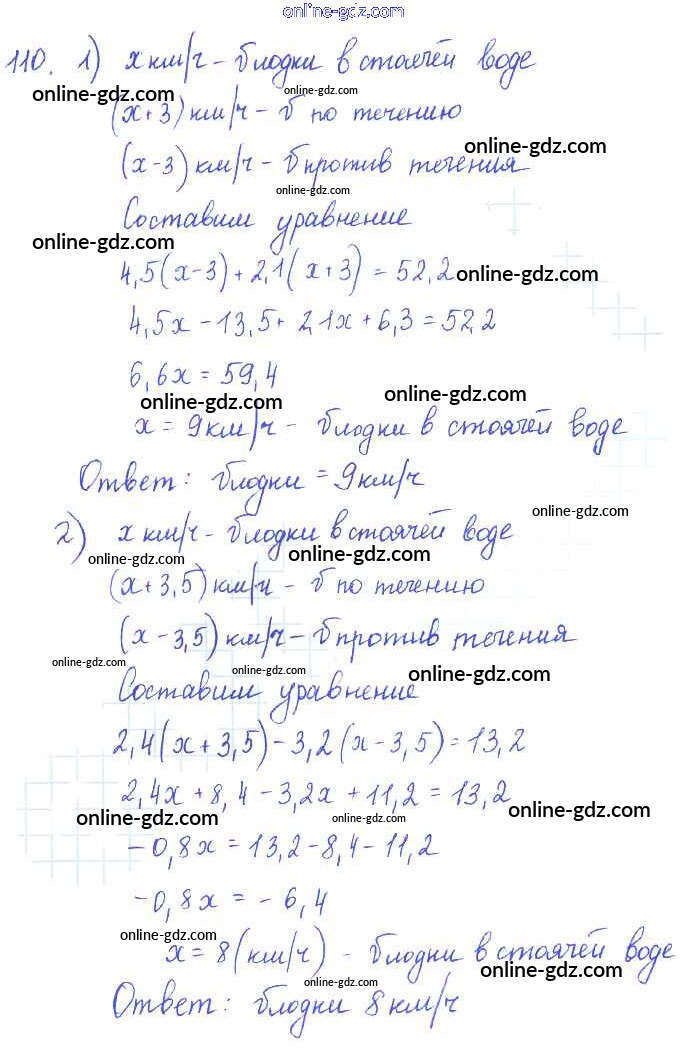 online-gdz.com
110. 1) x км/ч - v лодки в стоячей воде
online-gdz.com
(x+3) км/ч - v по течению
online-gdz.com
(x-3) км/ч - v против течения
online-gdz.com
Составим уравнение
online-gdz.com
4,5(x-3)+2,1(x+3)=52,2 online-gdz.com
4,5x-13,5+2,1x+6,3=52,2
6,6x=59,4
online-gdz.com online-gdz.com
x=9км/ч - v лодки в стоячей воде
Ответ: v лодки = 9км/ч
online-gdz.com
2) x км/ч - v лодки в стоячей воде
online-gdz.com online-gdz.com
(x+3,5) км/ч - v по течению
(x-3,5) км/ч - v против течения
online-gdz.com online-gdz.com online-gdz.com
Составим уравнение
2,4(x+3,5)-3,2(x-3,5)=13,2
2,4x+8,4-3,2x+11,2=13,2
online-gdz.com online-gdz.com online-gdz.com
-0,8x=13,2-8,4-11,2
-0,8x=-6,4
online-gdz.com
x=8(км/ч) - v лодки в стоячей воде
online-gdz.com online-gdz.com
Ответ: v лодки 8 км/ч